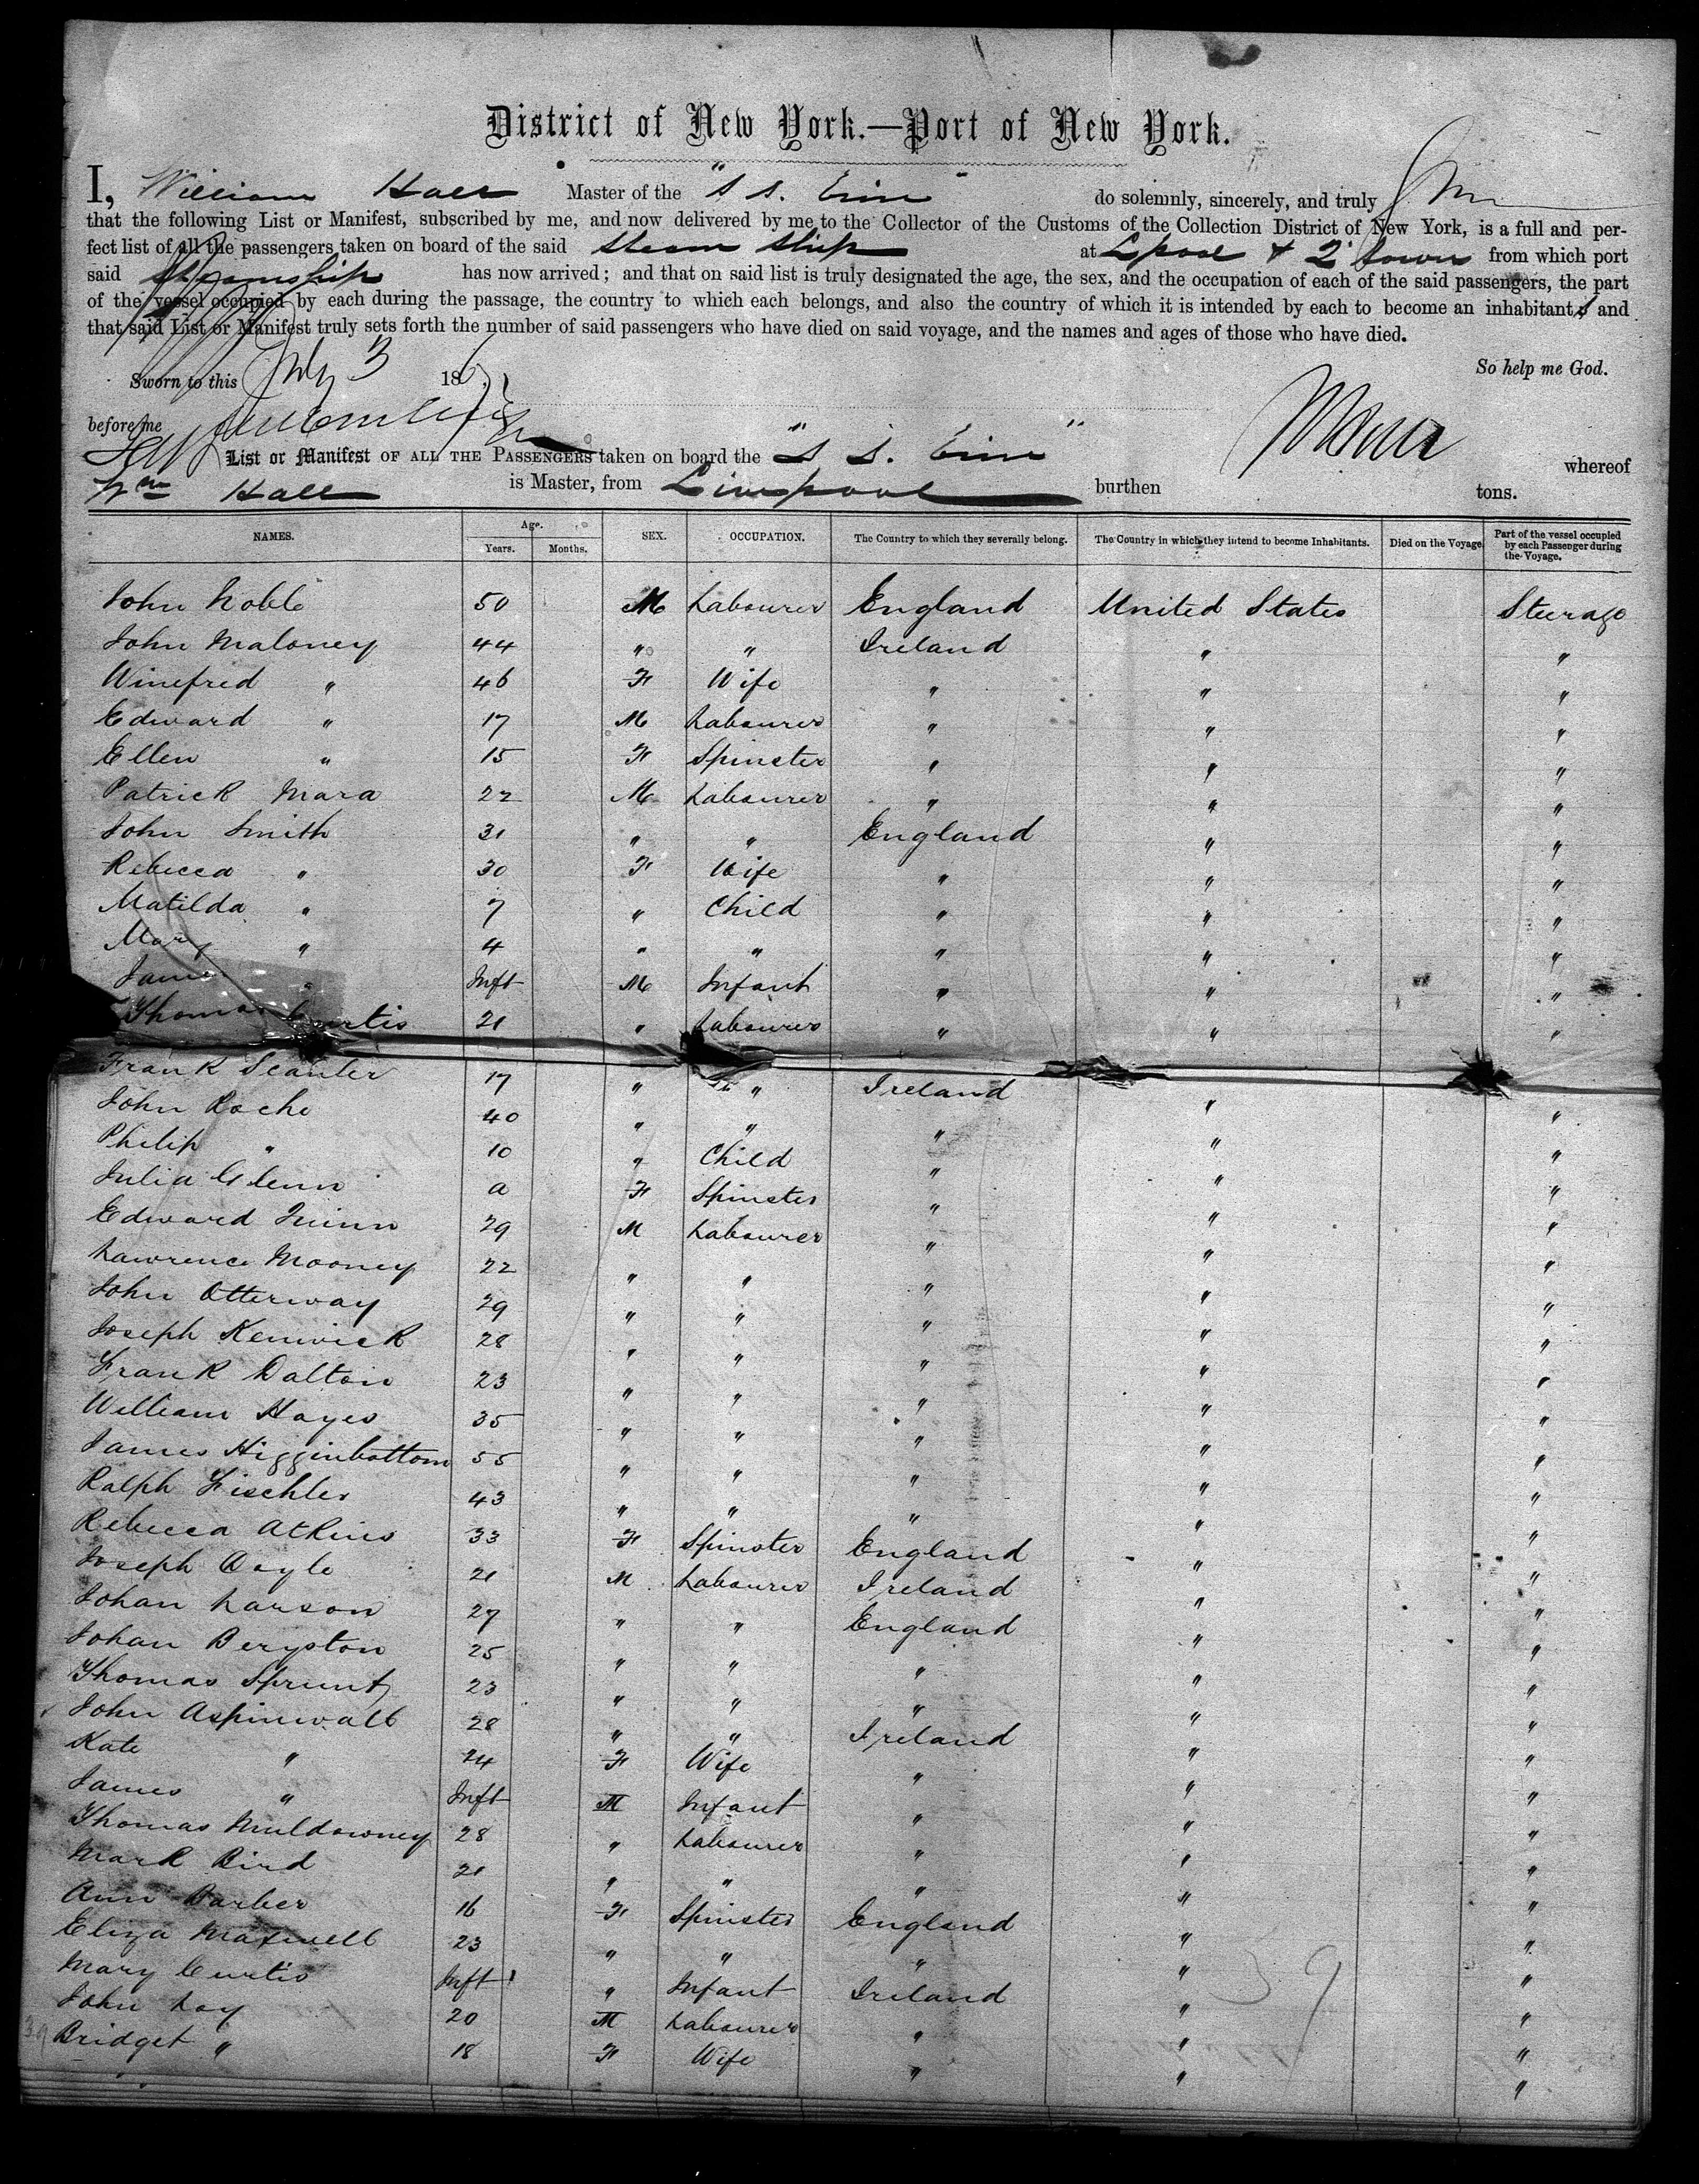 District of New York.—Port of New York.
I, William Hall Master of the "S S. Erin" do solemnly, sincerely, and truly
that the following List or Manifest, subscribed by me, and now delivered by me to the Collector of the Customs of the Collection District of New York, is a full and per-
fect list of all the passengers taken on board of the said Steam Ship at Lpool & Q. town from which port
said Steamship has now arrived; and that on said list is truly designated the age, the sex, and the occupation of each of the said passengers, the part
of the vessel occupied by each during the passage, the country to which each belongs, and also the country of which it is intended by each to become an inhabitant; and
that said List or Manifest truly sets forth the number of said passengers who have died on said voyage, and the names and ages of those who have died.
So help me God.
Sworn to this July 3 186
before me
List or Manifest OF ALL THE PASSENGERS taken on board the "S S. Erin" whereof
Wm Hall is Master, from Liverpool burthen tons.
NAMES. Age. Years. Months. SEX. OCCUPATION. The Country to which they severally belong. The Country in which they intend to become Inhabitants. Died on the Voyage. Part of the vessel occupied by each Passenger during the Voyage.
John Noble 50 M Labourer England United States Steerage
John Maloney 44 " " Ireland " "
Winefred " 46 F Wife " " "
Edward " 17 M Labourer " " "
Ellen " 15 F Spinster " " "
Patrick Mara 22 M Labourer " " "
John Smith 31 " " England " "
Rebecca " 30 F Wife " " "
Matilda " 7 " Child " " "
Mary " 4 " " " " "
James " Inft M Infant " " "
Thomas Curtis 21 " Labourer " " "
Frank Scanler 17 " " Ireland " "
John Roche 40 " " " " "
Philip " 10 " Child " " "
Julia Glenn a F Spinster " " "
Edward Quinn 29 M Labourer " " "
Lawrence Mooney 22 " " " " "
John Otterway 29 " " " " "
Joseph Kenwick 28 " " " " "
Frank Dalton 23 " " " " "
William Hayes 35 " " " " "
James Higginbottom 55 " " " " "
Ralph Fischler 43 " " " " "
Rebecca Atkins 33 F Spinster England " "
Joseph Doyle 21 M Labourer Ireland " "
Johan Larson 27 " " England " "
Johan Beryston 25 " " " " "
Thomas Sprunt 23 " " " " "
John Aspinwall 28 " " Ireland " "
Kate " 24 F Wife " " "
James " Inft M Infant " " "
Thomas Muldowney 28 " Labourer " " "
Mark Bird 21 " " " " "
Ann Barber 16 F Spinster England " "
Eliza Maxwell 23 " " " " "
Mary Curtis Inft " Infant Ireland " "
John Loy 20 M Labourer " " "
Bridget " 18 F Wife " " "
39
39